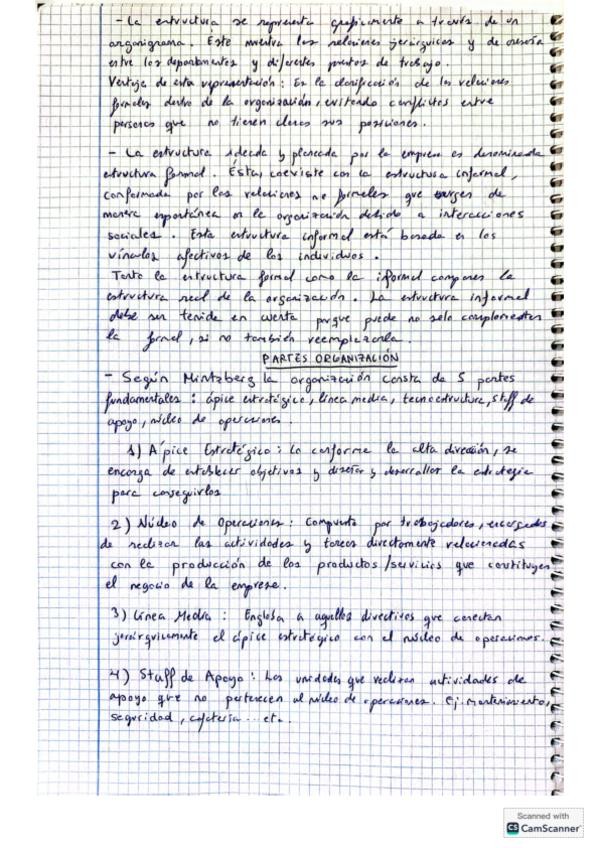 - La estructura se representa graficamente a través de un
organigrama. Este muestra las relaciones jerárquicas y de asesoría
entre los departamentos y diferentes puestos de trabajo.
Ventaja de esta representación: Es la clarificación de las relaciones
formales dentro de la organización, evitando conflictos entre
personas que no tienen claras sus posiciones.
- La estructura ideada y planeada por la empresa es denominada
estructura formal. Ésta, coexiste con la estructura informal,
conformada por las relaciones no formales que surgen de
manera espontánea en la organización debido a interacciones
sociales. Esta estructura informal está basada en los
vínculos afectivos de los individuos.
Tanto la estructura formal como la informal componen la
estructura real de la organización. La estructura informal
debe ser tenida en cuenta porque puede no solo complementar
la formal, si no también reemplazarla.
PARTES ORGANIZACIÓN
- Según Mintzberg la organización consta de 5 partes
fundamentales: ápice estratégico, línea media, tecnoestructura, staff de
apoyo, núcleo de operaciones.
1) Ápice Estratégico: Lo conforma la alta dirección, se
encarga de establecer objetivos y diseñar y desarrollar la estrategia
para conseguirlos
2) Núcleo de Operaciones: Compuesta por trabajadores, encargados
de realizar las actividades y tareas directamente relacionadas
con la producción de los productos/servicios que constituyen
el negocio de la empresa.
3) Línea Media: Engloba a aquellos directivos que conectan
jerárquicamente el ápice estratégico con el núcleo de operaciones.
4) Staff de Apoyo: Las unidades que realizan actividades de
apoyo que no pertenecen al núcleo de operaciones. Ej. mantenimiento,
seguridad, cafetería... etc.
Scanned with
CS CamScanner